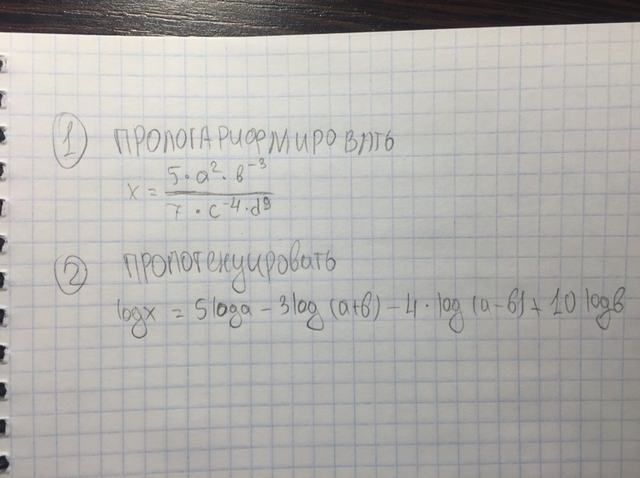 1 ПРОЛОГАРИФМИРОВАТЬ
x = \frac{5 \cdot a^2 \cdot в^{-3}}{7 \cdot c^{-4} \cdot d^9}
2 пропотенцировать
logx = 5loga - 3log(a+в) - 4 \cdot log(a-в) + 10logв